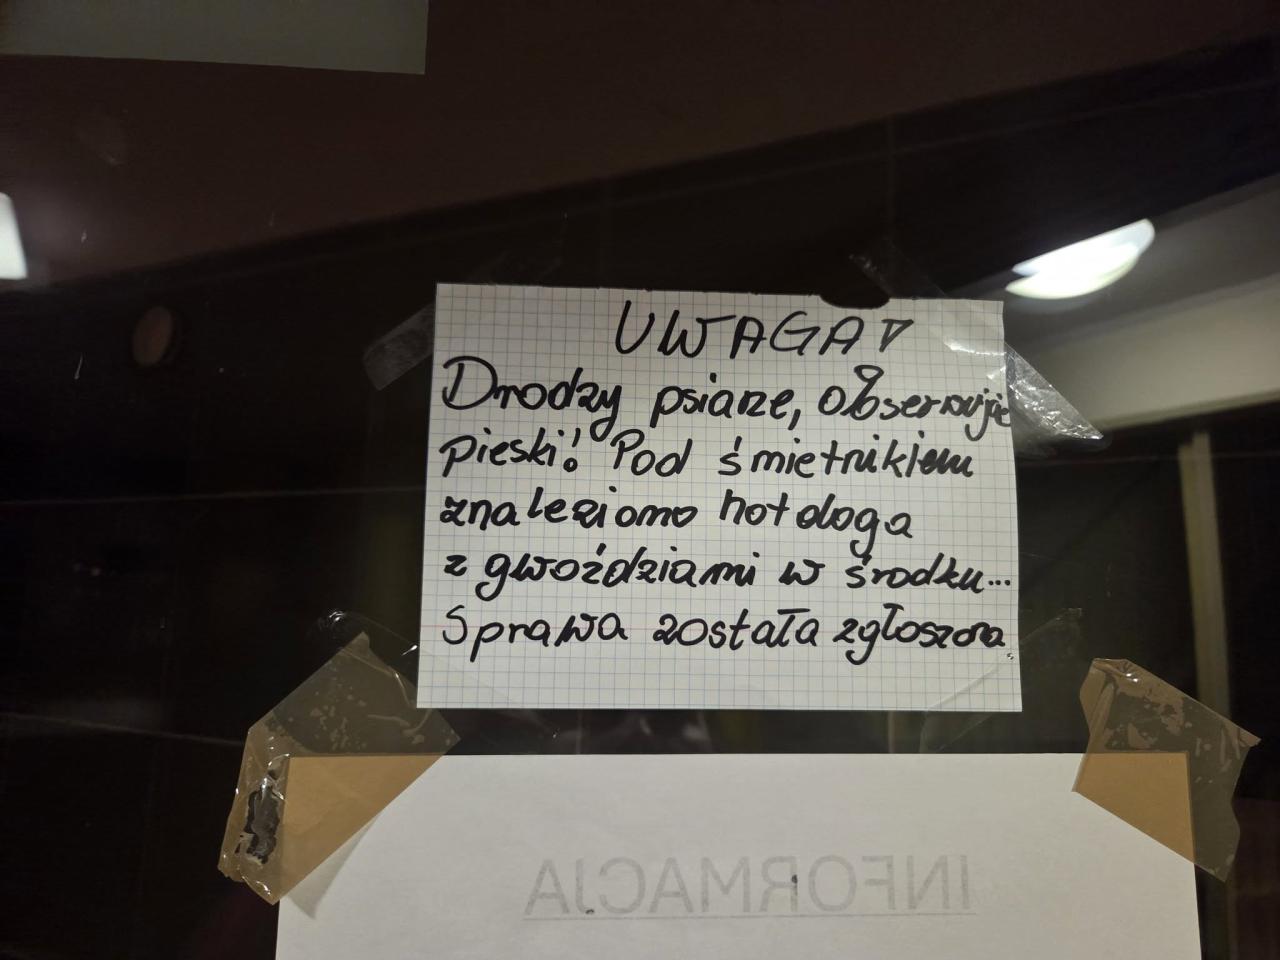 UWAGA!
Drodzy psiarze, obserwujcie
pieski! Pod śmietnikiem
znaleziono hotdoga
z gwoździami w środku...
Sprawa została zgłoszona.
INFORMACJA